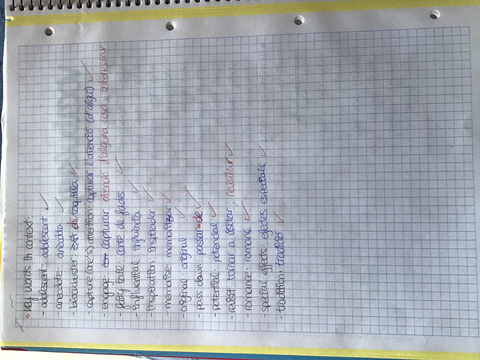 Key words in context:
- adolescent: adolescent
- anecdote: anècdota
- blockbuster: taquilla
- capture (one's) attention: capturar l'atenció (d'algú)
- engage: capturar atenció d'alguna cosa, interessar
- fairy tale: conte de fades
- influential: influent
- inspiration: inspirador
- memorise: memoritzar
- original: original
- pass down: passar-de
- potential: potencial
- revisit: tornar a visitar, revisitar
- romance: romanç
- special effects: efectes especials
- tradition: tradició